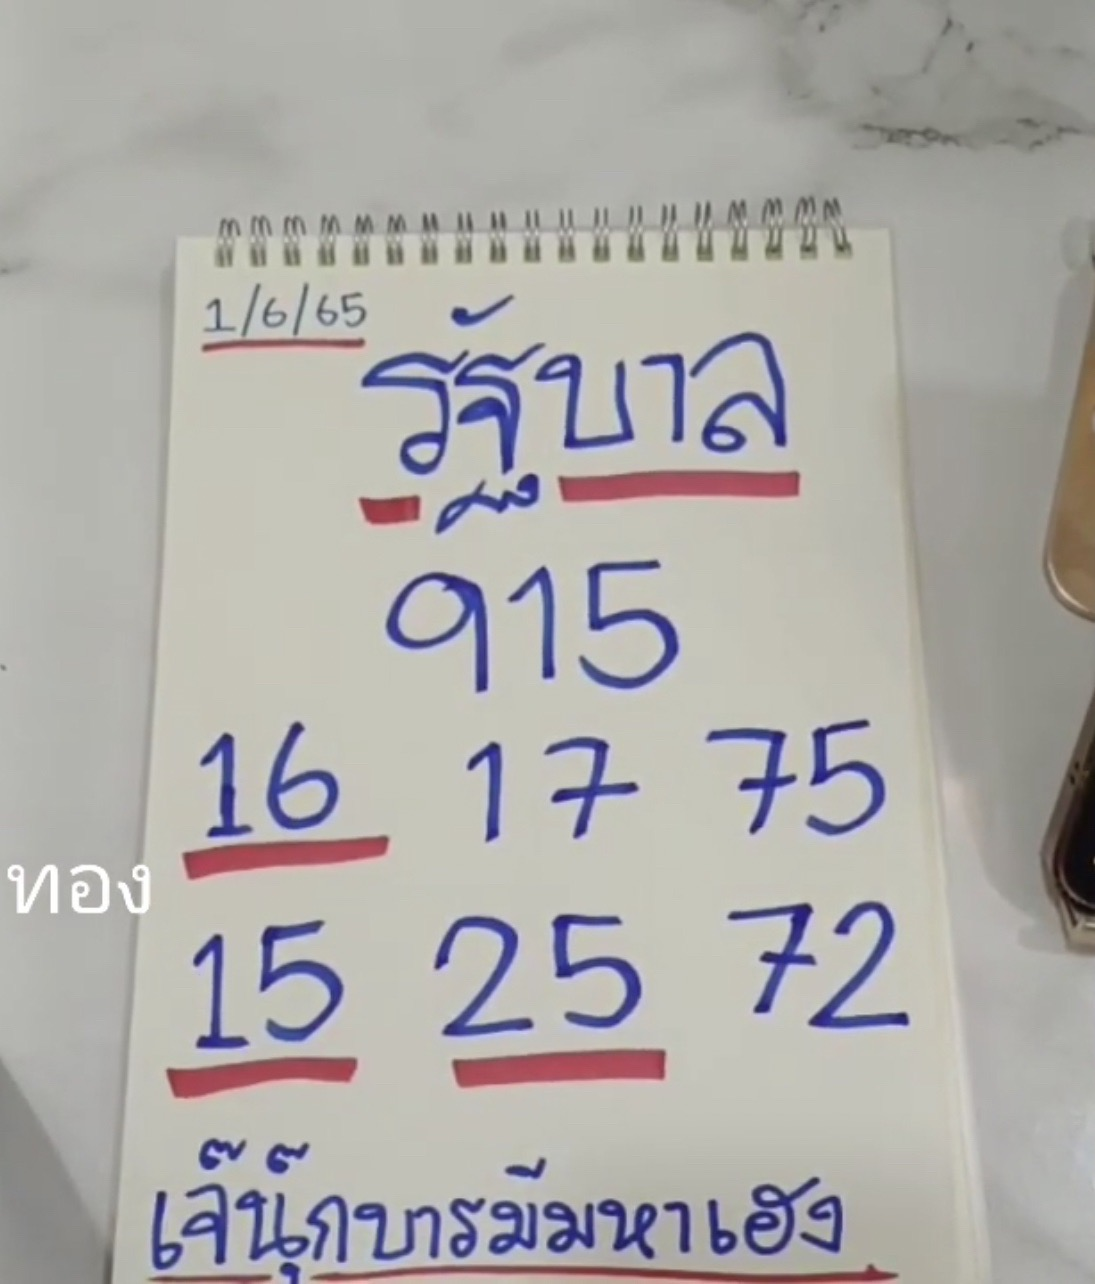 1/6/65
รัฐบาล
915
16 17 75
ทอง
15 25 72
เจ๊นุ๊กบารมีมหาเฮง